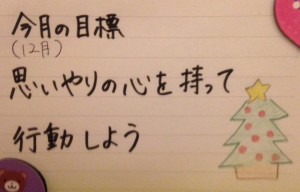 今月の目標
(12月)
思いやりの心を持って
行動しよう